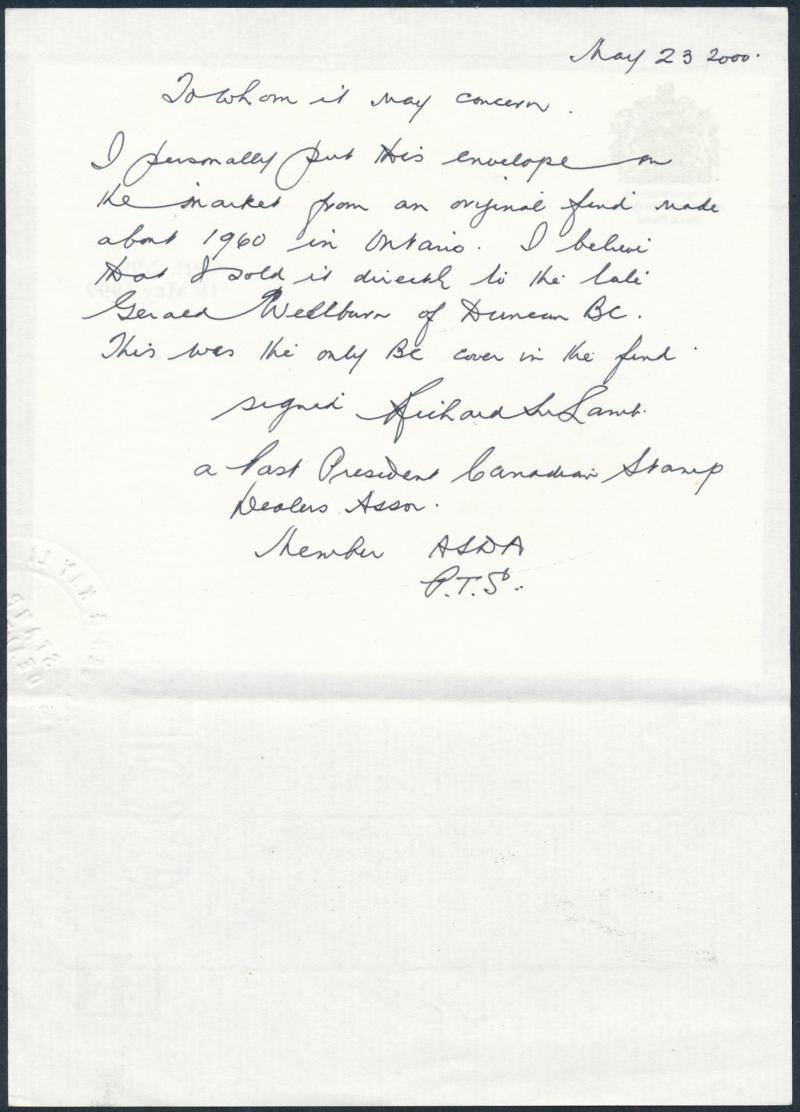 May 23 2000.
To whom it may concern.
I personally put this envelope on
the market from an original find made
about 1960 in Ontario. I believe
that I sold it directly to the late
Gerald Wellburn of Duncan BC.
This was the only BC cover in the find.
signed Richard M Lamb.
a Past President Canadian Stamp
Dealers Assor.
Member ASDA
P.T.S.